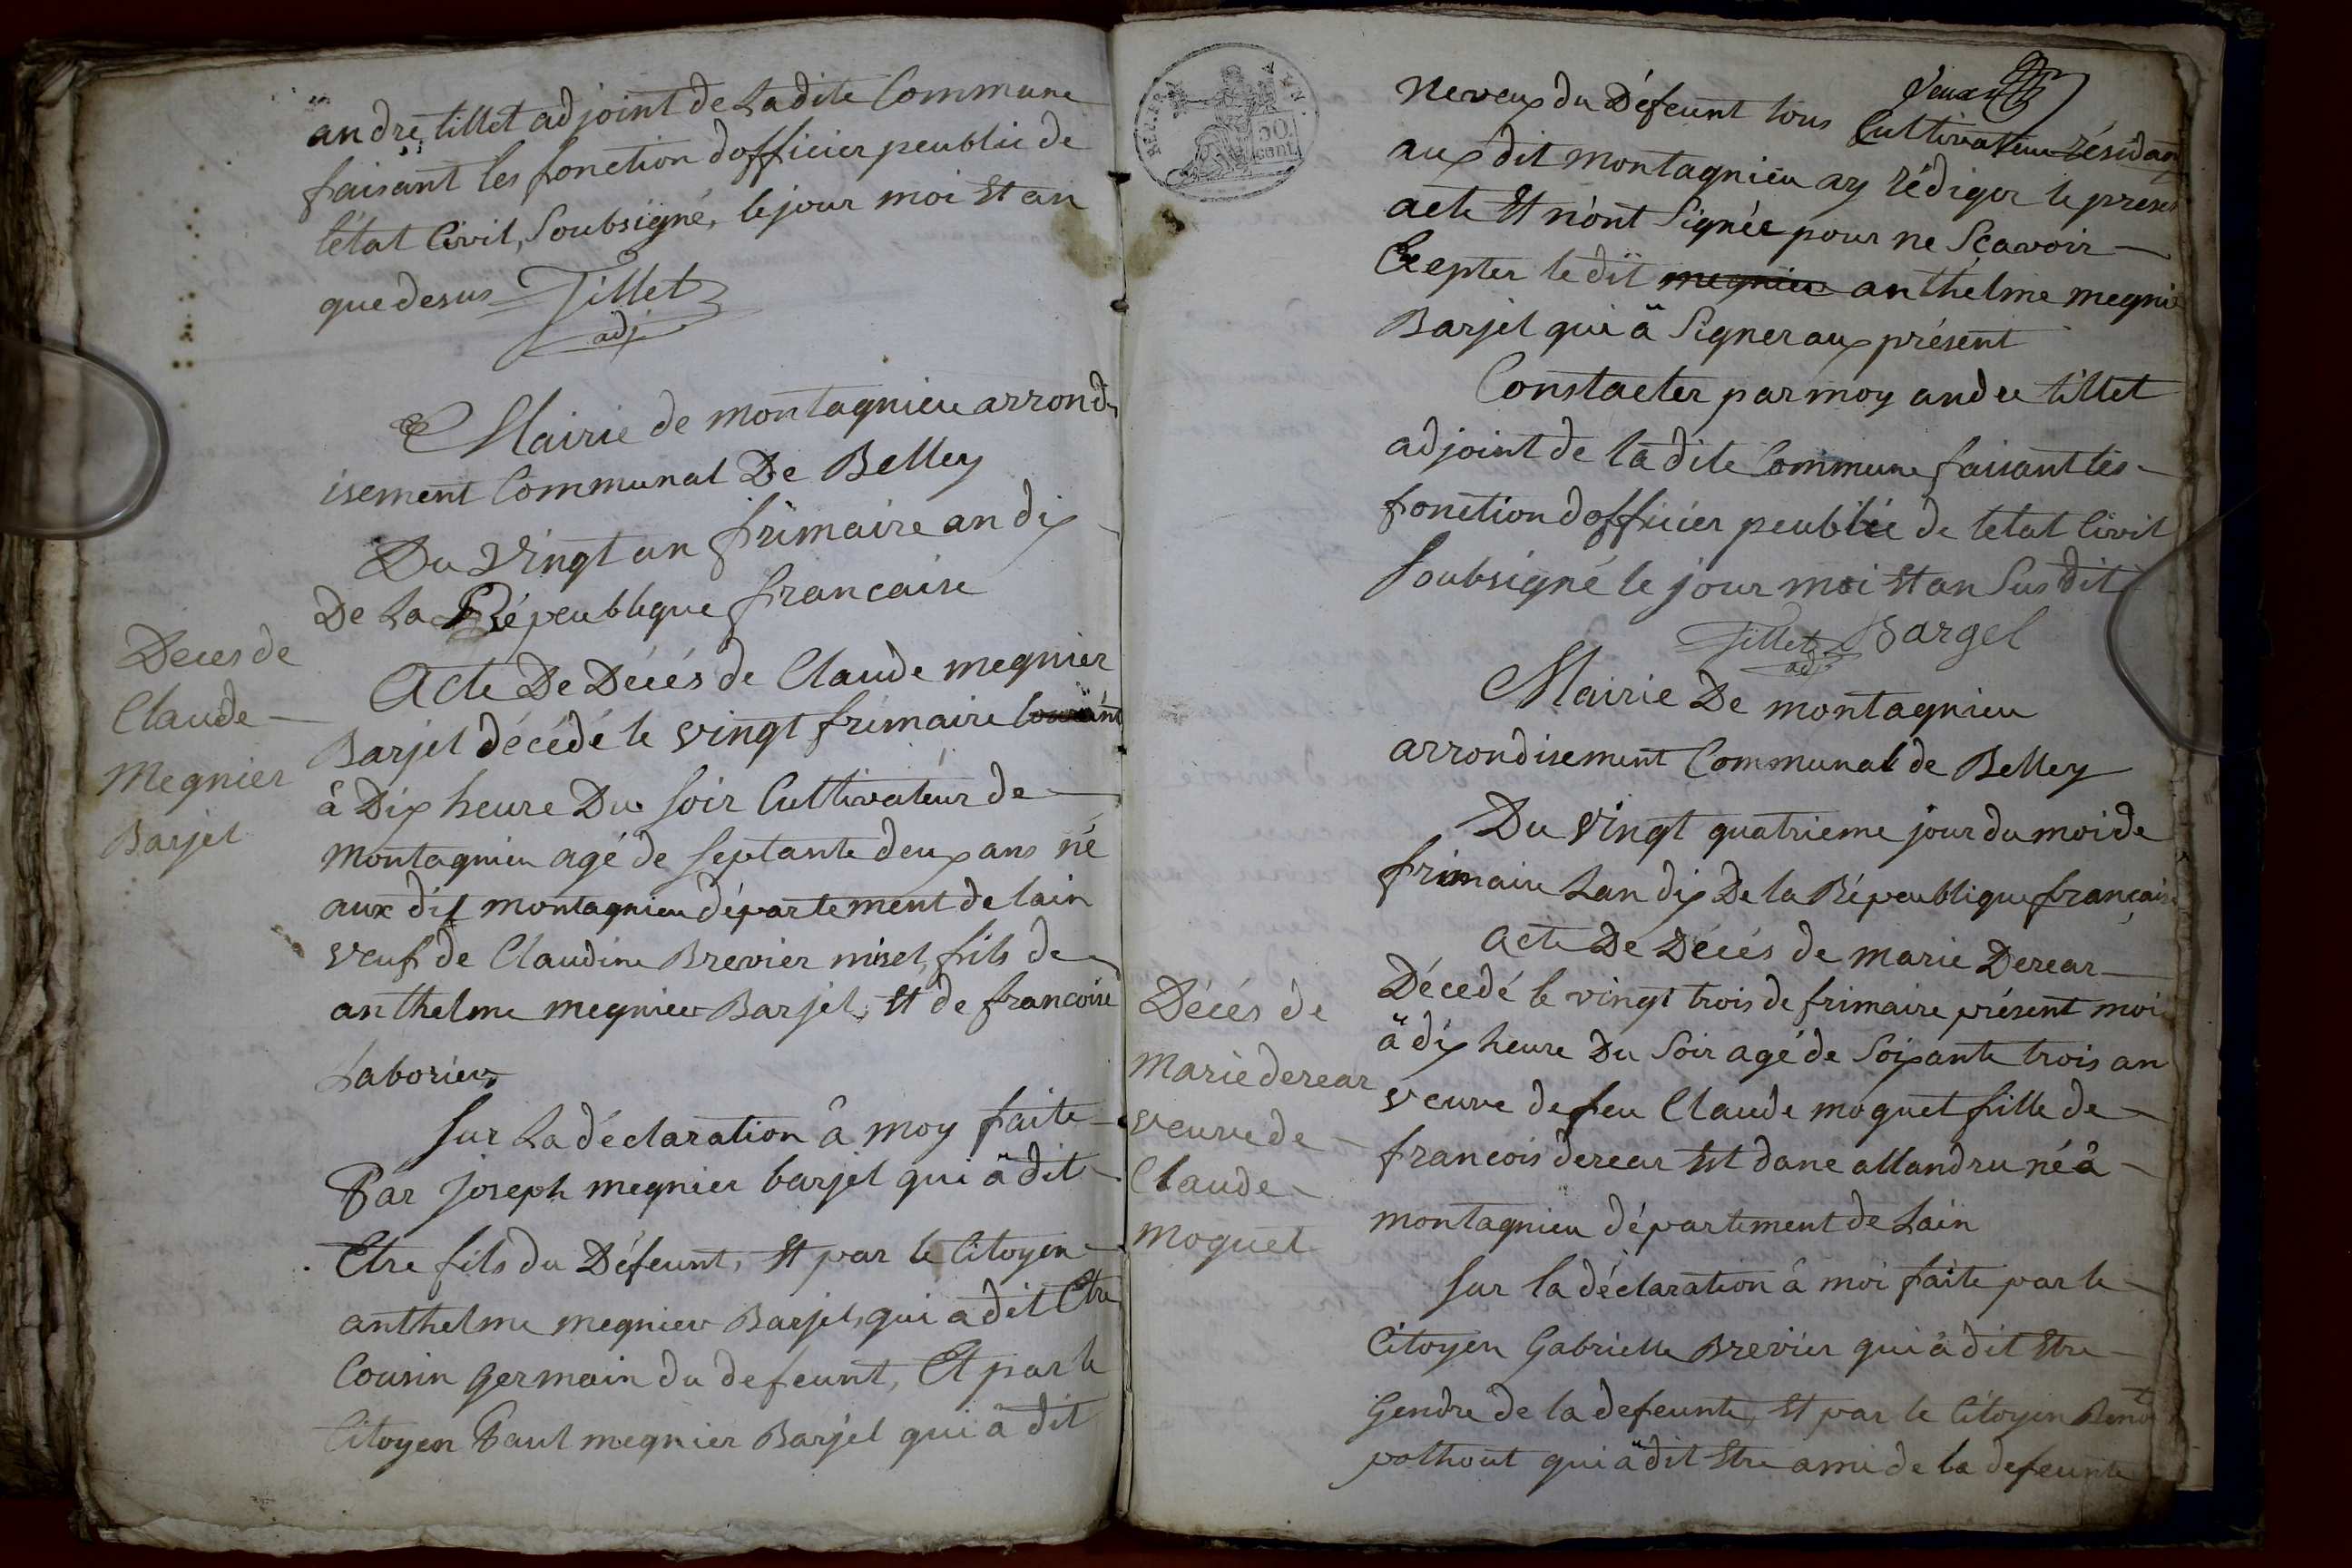 andre tillet adjoint de Ladite Commune
faisant les fonction dofficier peublic de
létat Civil, Soubsigné, le jour moi Et an
que desus Tillet
adj
Mairie de montagnieu arrond
isement Communal De Belley
Du Vingt un frimaire an dix
De La Répeublique francaise
Deces de
Claude
Megnier
Barjel
Acte De Décés de Claude megnier
Barjel décédé le vingt frimaire Courant
à Dix heure Du Soir Cultivateur de
montagnieu agé de septante deux ans né
aux dit montagnieu département de lain
veuf de Claudine Brevier misel, fils de
anthelme megnier Barjel, Et de francoise
Laborier
Sur La déclaration â moy faite
Par joseph megnier barjel qui ä dit
Etre fils du Défeunt, Et par le Citoyen
anthelme megnier Barjel, qui a dit Etre
Cousin germain du defeunt, Et par le
Citoyen Paul megnier Barjel qui â dit
REP. FRA.
50.
cent.
Neveux du Défeunt tous Cultivateur résidan
aux dit montagnieu ay rédiger le présent
acte Et nónt Signée pour ne Sçavoir
Exepter le dit megnier anthelme megnie
Barjel qui ä Signer aux présent
Constacter par moy andre tillet
adjoint de la dite Commune faisant les
fonction dofficier peublic de letat Civil
Soubsigné le jour moi Et an Sus dit
Tillet Bargel
adj
Mairie De montagnieu
arrondisement Communal de Belley
Du Vingt quatrieme jour du moi de
frimaire Lan dix De la Répeublique française
Décés de
Marie derear
veuve de
Claude
Moquet
Acte De Décés de marie Derear
Décedé le vingt trois de frimaire présent moi
ä dix heure Du Soir agé de Soixante trois an
veuve de feu Claude moquet fille de
francois derear Et dane allandru né â
montagnieu département de Lain
Sur la déclaration â moi faite par le
Citoyen Gabrielle Brevier qui â dit Etre
Gendre de la defeunte, Et par le Citoyen Benoit
pothout qui ä dit Etre ami de la defeunte